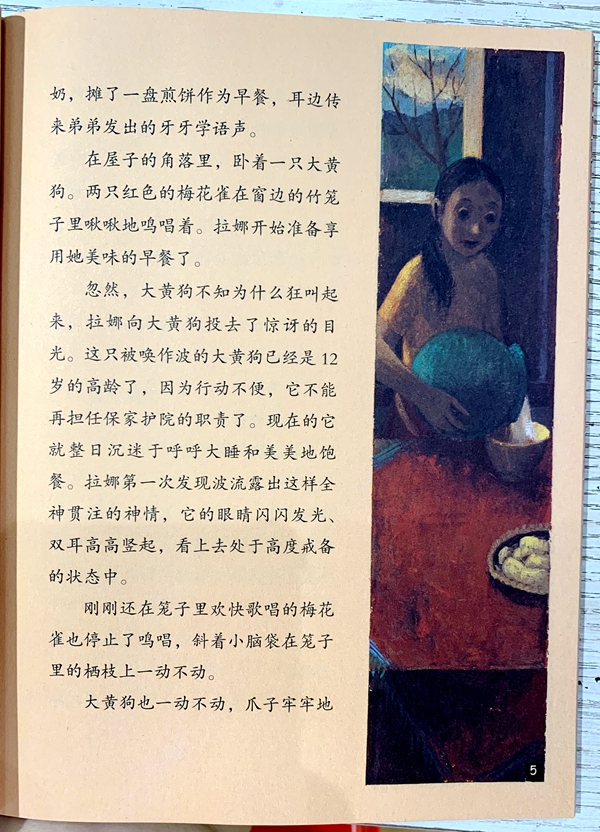 奶，摊了一盘煎饼作为早餐，耳边传
来弟弟发出的牙牙学语声。
在屋子的角落里，卧着一只大黄
狗。两只红色的梅花雀在窗边的竹笼
子里啾啾地鸣唱着。拉娜开始准备享
用她美味的早餐了。
忽然，大黄狗不知为什么狂叫起
来，拉娜向大黄狗投去了惊讶的目
光。这只被唤作波的大黄狗已经是 12
岁的高龄了，因为行动不便，它不能
再担任保家护院的职责了。现在的它
就整日沉迷于呼呼大睡和美美地饱
餐。拉娜第一次发现波流露出这样全
神贯注的神情，它的眼睛闪闪发光、
双耳高高竖起，看上去处于高度戒备
的状态中。
刚刚还在笼子里欢快歌唱的梅花
雀也停止了鸣唱，斜着小脑袋在笼子
里的栖枝上一动不动。
大黄狗也一动不动，爪子牢牢地
5